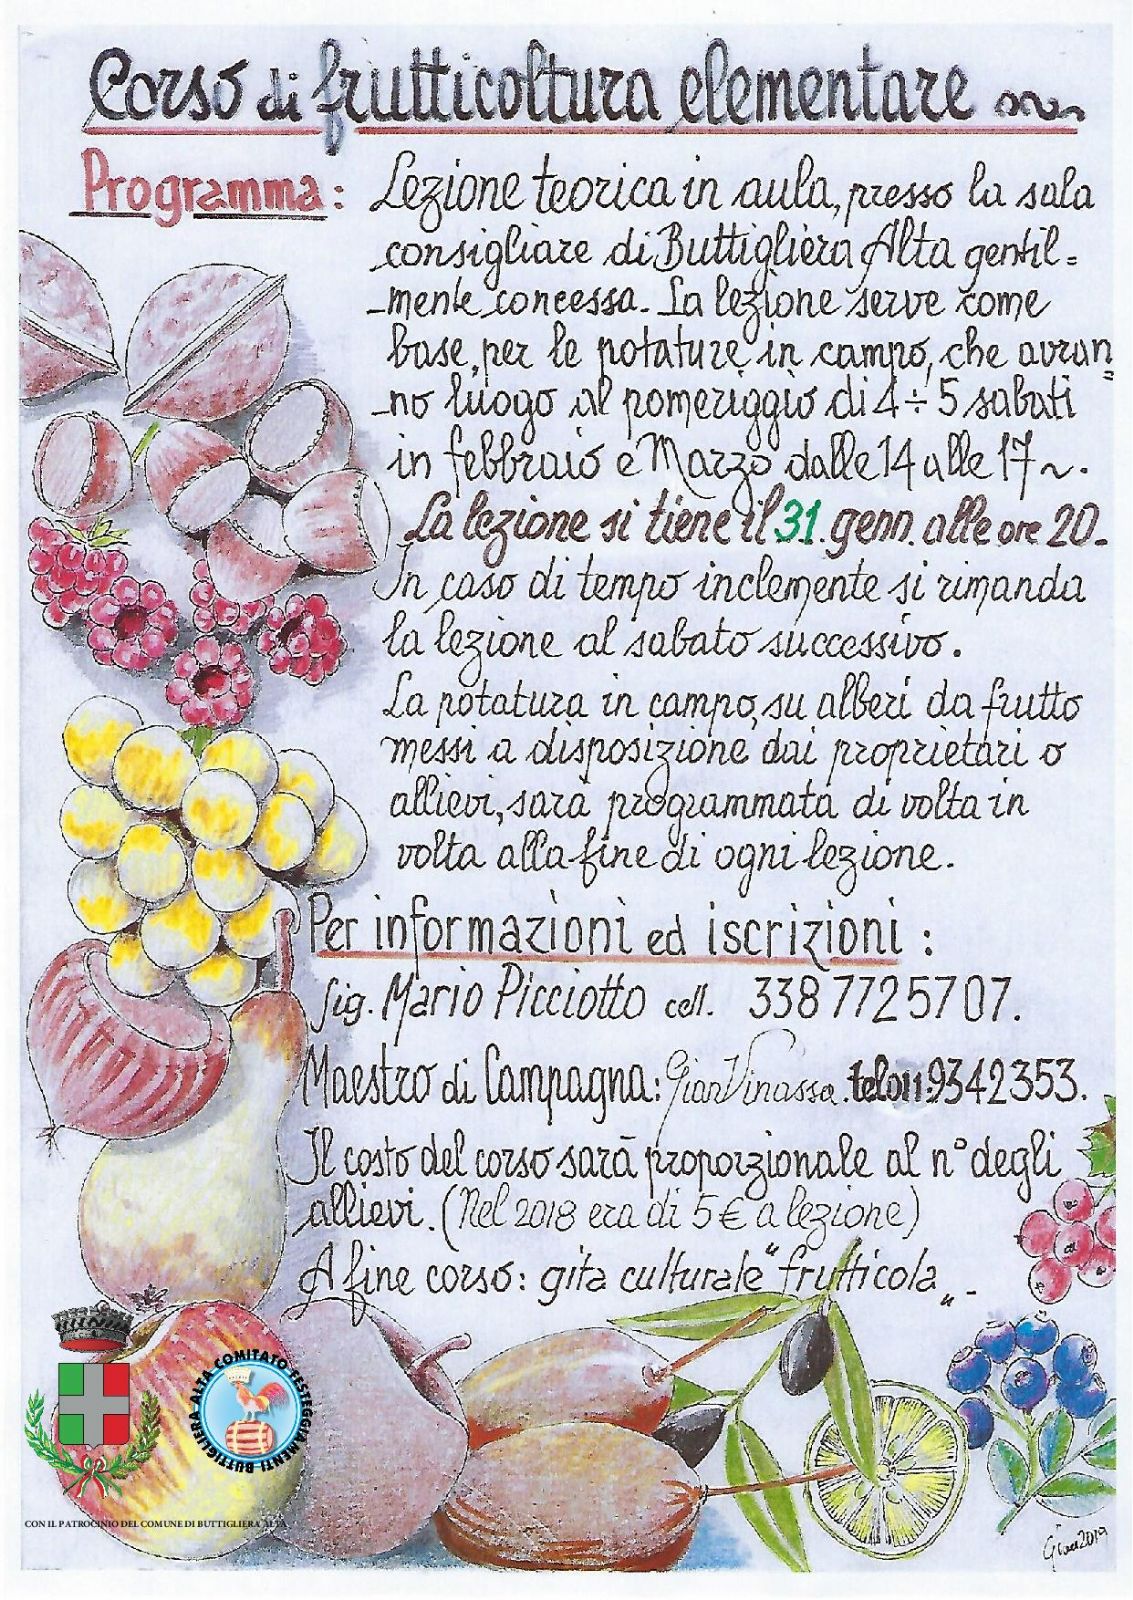 Corso di frutticoltura elementare
Programma: Lezione teorica in aula, presso la sala
consigliare di Buttigliera Alta gentil=
-mente concessa. La lezione serve come
base, per le potature, in campo, che avran=
-no luogo al pomeriggio di 4÷5 sabati
in febbraio e Marzo dalle 14 alle 17~.
La lezione si tiene il 31 genn. alle ore 20.
In caso di tempo inclemente si rimanda
la lezione al sabato successivo.
La potatura in campo, su alberi da frutto
messi a disposizione dai proprietari o
allievi, sarà programmata di volta in
volta alla fine di ogni lezione.
Per informazioni ed iscrizioni:
Sig. Mario Picciotto cell. 338 7725707.
Maestro di Campagna: Gian Vinassa. tel 011:9342353.
Il costo del corso sarà proporzionale al n° degli
allievi. (Nel 2018 era di 5 € a lezione)
A fine corso: gita culturale "frutticola".
COMITATO FESTEGGIAMENTI BUTTIGLIERA ALTA
CON IL PATROCINIO DEL COMUNE DI BUTTIGLIERA ALTA
Gian 2019